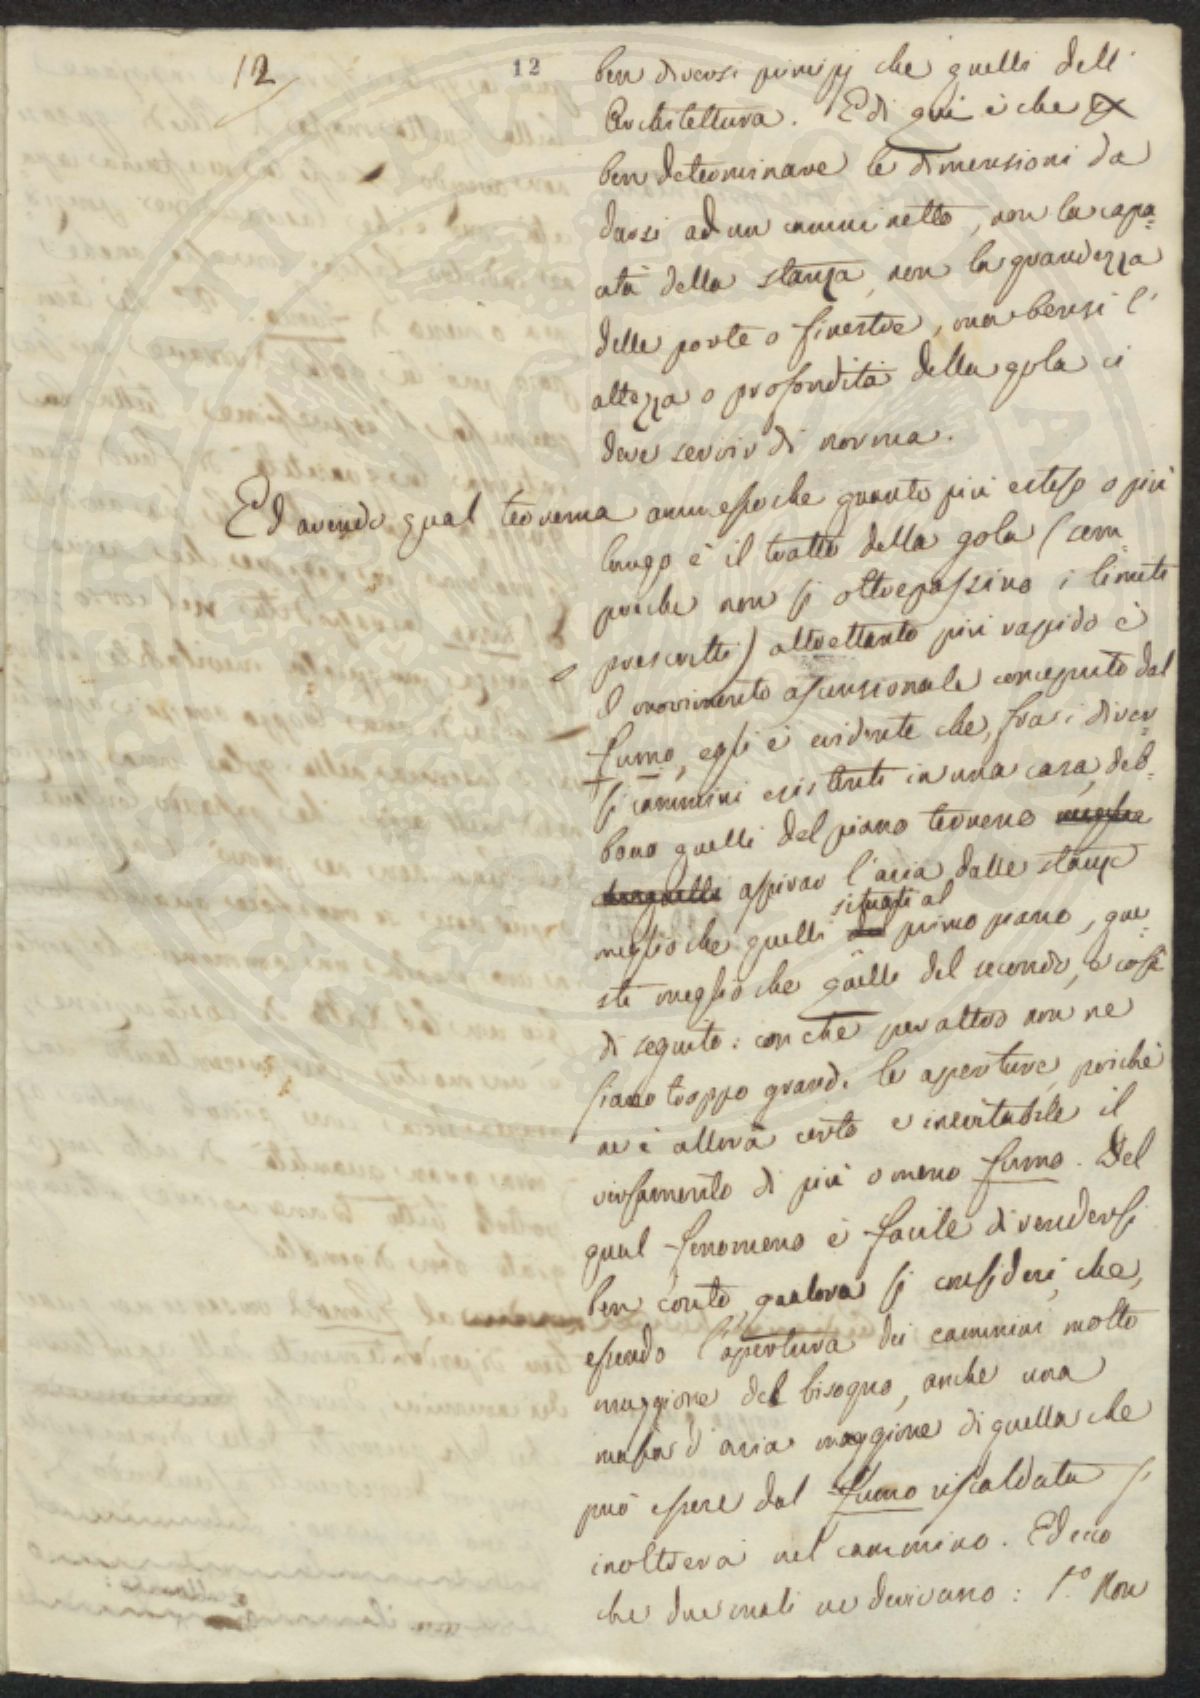 12
12
ben diversi principj che quelli dell'
Architettura. E di qui è che
ben determinare le dimensioni da
darsi ad un camminetto, non la capa=
cità della stanza, non la grandezza
delle porte o finestre, ma bensì l'
altezza o profondità della gola ci
deve servir di norma.
Ed avendo qual teorema ammesso che quanto più esteso o più
lungo è il tratto della gola (sem=
prechè non si oltrepassino i limiti
prescritti) altrettanto più rapido è
il movimento ascensionale conceputo dal
fumo, egli è evidente che, fra i diver=
si cammini esistenti in una casa, deb=
bono quelli del piano terreno meglio
che quelli aspirar l'aria dalle stanze
situati al
meglio che quelli del primo piano, que=
sti meglio che quelli del secondo, e così
di seguito: con che per altro non ne
siano troppo grandi le aperture, poichè
ne è allora certo e inevitabile il
versamento di più o meno fumo. Del
qual fenomeno è facile di rendersi
ben conto, qualora si consideri, che,
essendo l'apertura dei cammini molto
maggiore del bisogno, anche una
massa d'aria maggiore di quella che
può essere dal fumo riscaldata s'
inoltrerà nel cammino. Ed ecco
che due mali ne derivano: 1.° Non